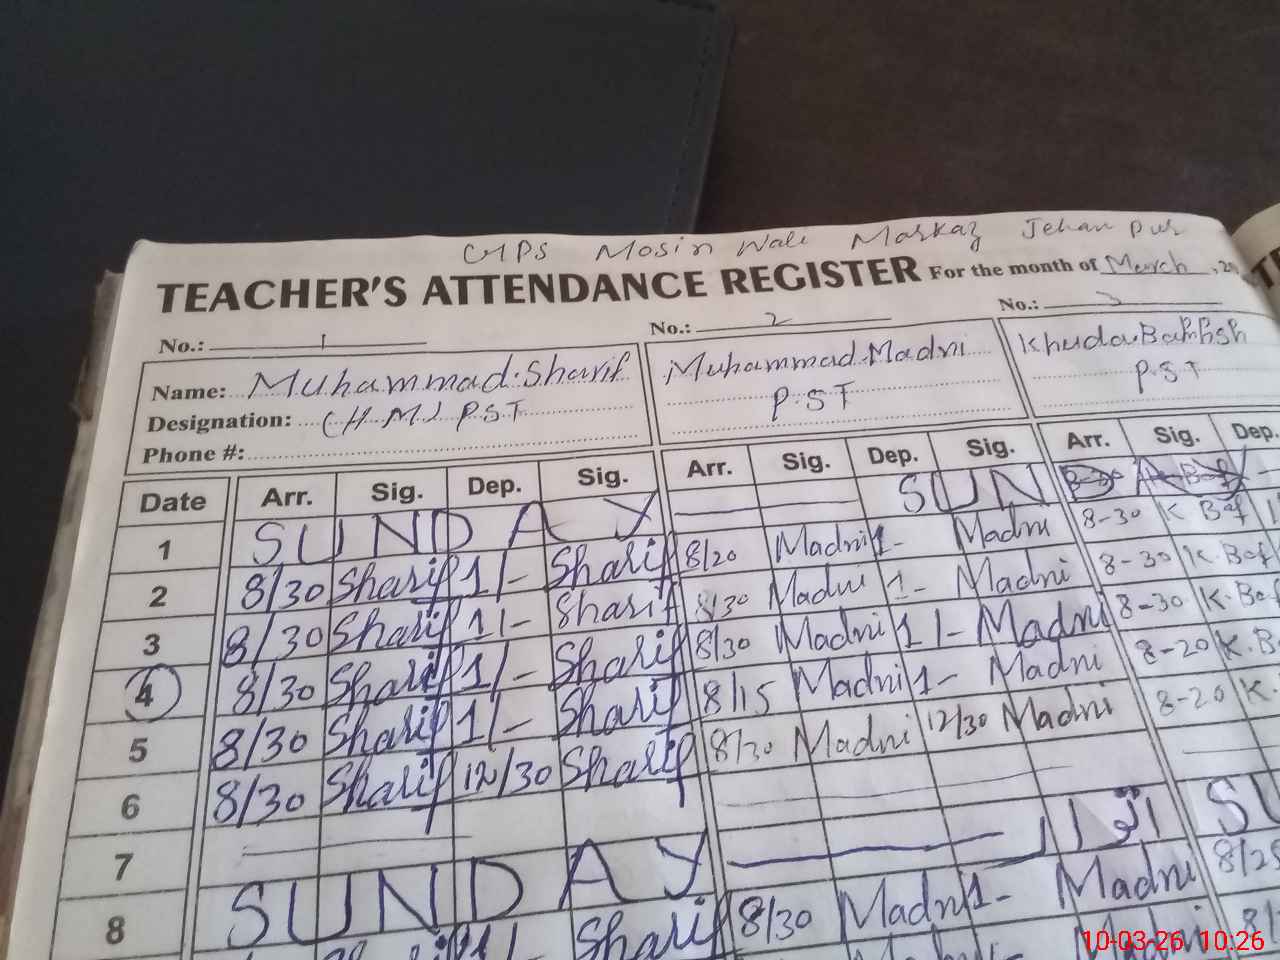 GMPS Mosin Wali Markaz Jehan pur
TEACHER'S ATTENDANCE REGISTER For the month of March, 20
No.: 1 No.: 2 No.: 3
Name: Muhammad Sharif Muhammad Madni Khuda Bakhsh
Designation: (H.M) P.S.T P.S.T P.S.T
Phone #:
Date Arr. Sig. Dep. Sig. Arr. Sig. Dep. Sig. Arr. Sig. Dep.
1 SUNDAY SUN
2 8/30 Sharif 1/- Sharif 8/20 Madni 1- Madni 8-30
3 8/30 Sharif 1/- Sharif 8/30 Madni 1- Madni 8-30
4 8/30 Sharif 1/- Sharif 8/30 Madni 1/- Madni 8-30
5 8/30 Sharif 1/- Sharif 8/15 Madni 1- Madni 8-20
6 8/30 Sharif 12/30 Sharif 8/30 Madni 12/30 Madni 8-20
7
8 SUNDAY اتوار SU
Sharif 8/30 Madni 1- Madni
10-03-26 10:26